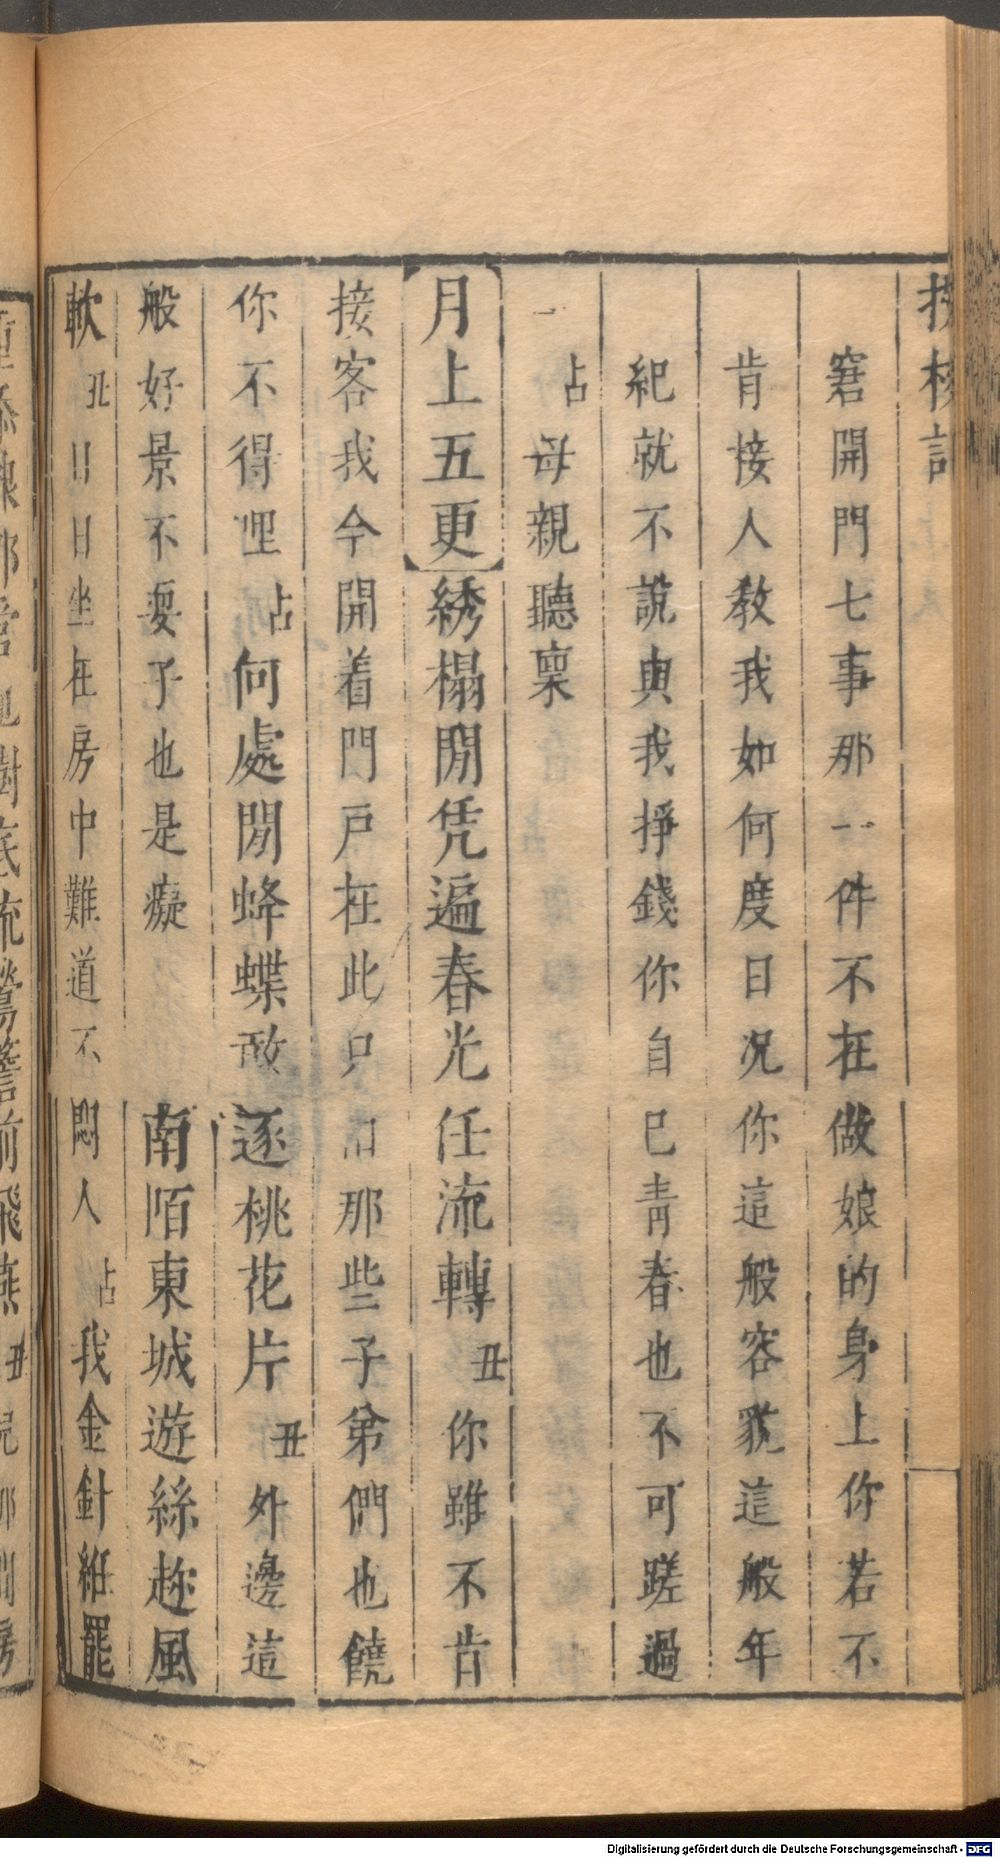 投梭記
窘開門七事那一件不在做娘的身上你若不
肯接人教我如何度日况你這般容貌這般年
紀就不說與我掙錢你自己青春也不可蹉過
占母親聽稟
【月上五更】綉榻閒凭遍春光任流轉丑你雖不肯
接客我今開着門戸在此只怕那些子弟們也饒
你不得哩占何處閒蜂蝶敢逐桃花片丑外邊這
般好景不耍子也是癡南陌東城遊絲趂風
軟丑日日坐在房中難道不悶人占我金針絍罷
樹底流鶯簷前飛燕丑
Digitalisierung gefördert durch die Deutsche Forschungsgemeinschaft - DFG